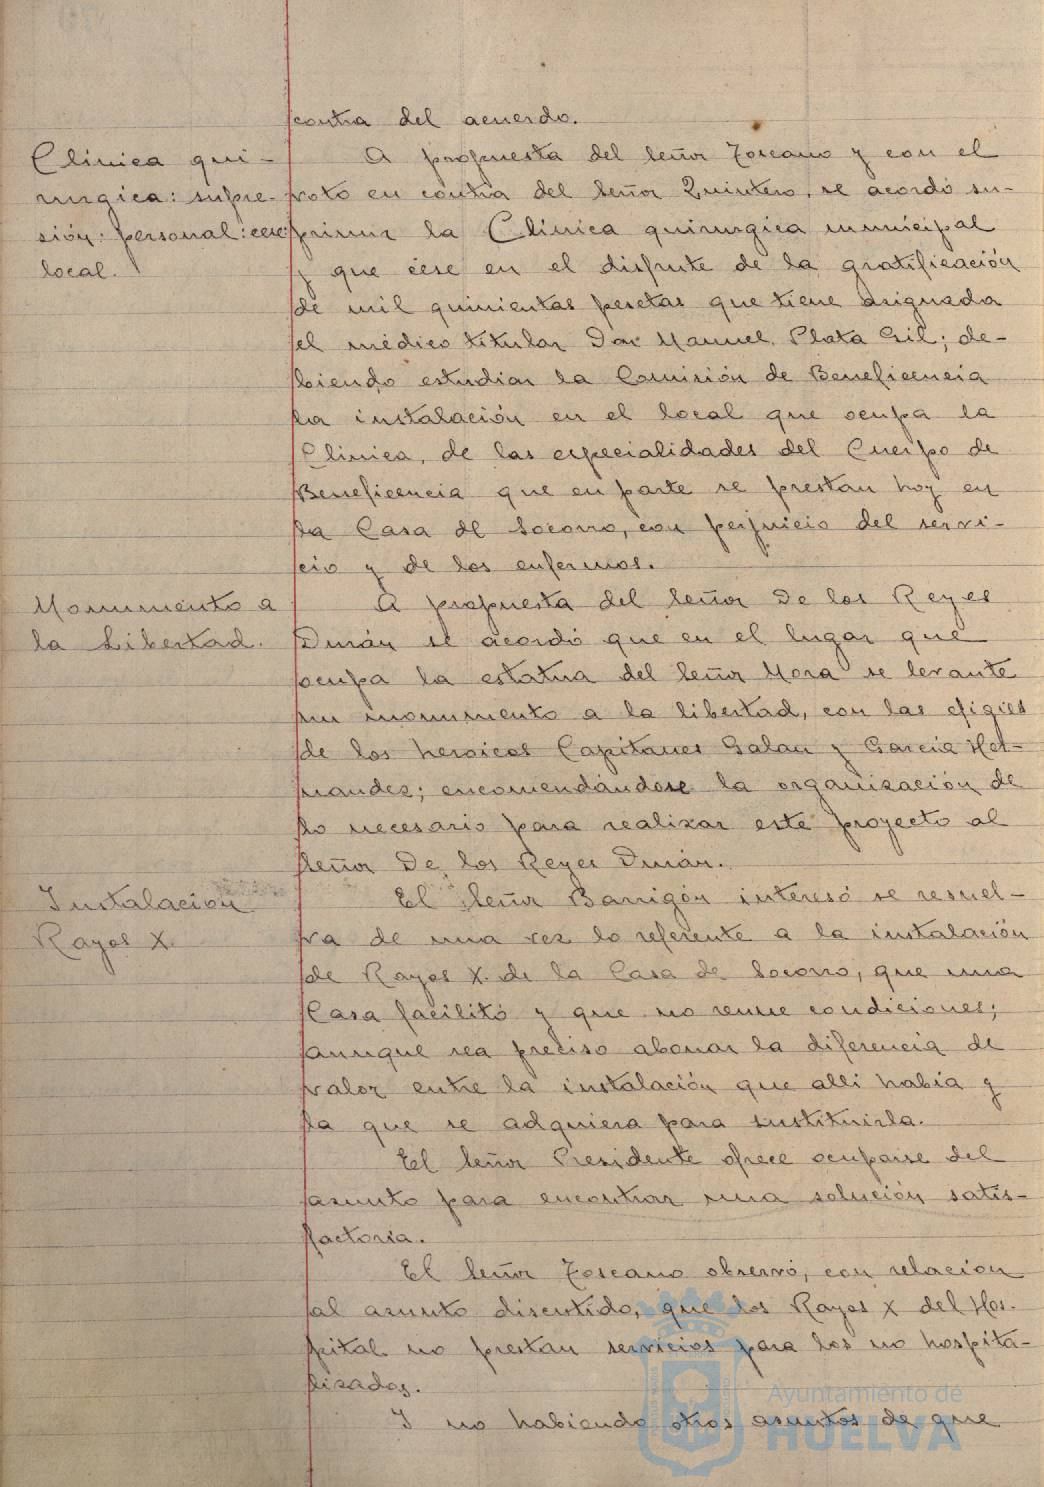 contra del acuerdo.
Clínica qui-
rurgica: supre-
sión: personal: cese:
local.
A propuesta del señor Toscano y con el
voto en contra del señor Quintero, se acordó su-
primir la Clínica quirurgica municipal
y que cese en el disfrute de la gratificación
de mil quinientas pesetas que tiene asignada
el médico titular Don Manuel Plata Gil; de-
biendo estudiar la Comisión de Beneficencia
la instalación en el local que ocupa la
Clinica, de las especialidades del Cuerpo de
Beneficencia que en parte se prestan hoy en
la Casa de Socorro, con perjuicio del servi-
cio y de los enfermos.
Monumento a
la Libertad.
A propuesta del señor De los Reyes
Durán se acordó que en el lugar que
ocupa la estatua del señor Mora se levante
un monumento a la libertad, con las efigies
de los heroicos Capitanes Galan y García Her-
nandez; encomendándose la organización de
lo necesario para realizar este proyecto al
señor De los Reyes Durán.
Instalación
Rayos X.
El señor Barrigón interesó se resuel-
va de una vez lo referente a la instalación
de Rayos X. de la Casa de Socorro, que una
Casa facilitó y que no reune condiciones;
aunque sea preciso abonar la diferencia de
valor entre la instalación que alli había y
la que se adquiera para sustituirla.
El señor Presidente ofrece ocuparse del
asunto para encontrar una solución satis-
factoria.
El señor Toscano observó, con relación
al asunto discutido, que los Rayos X del Hos-
pital no prestan servicios para los no hospita-
lizados.
Y no habiendo otros asuntos de que
Ayuntamiento de
HUELVA